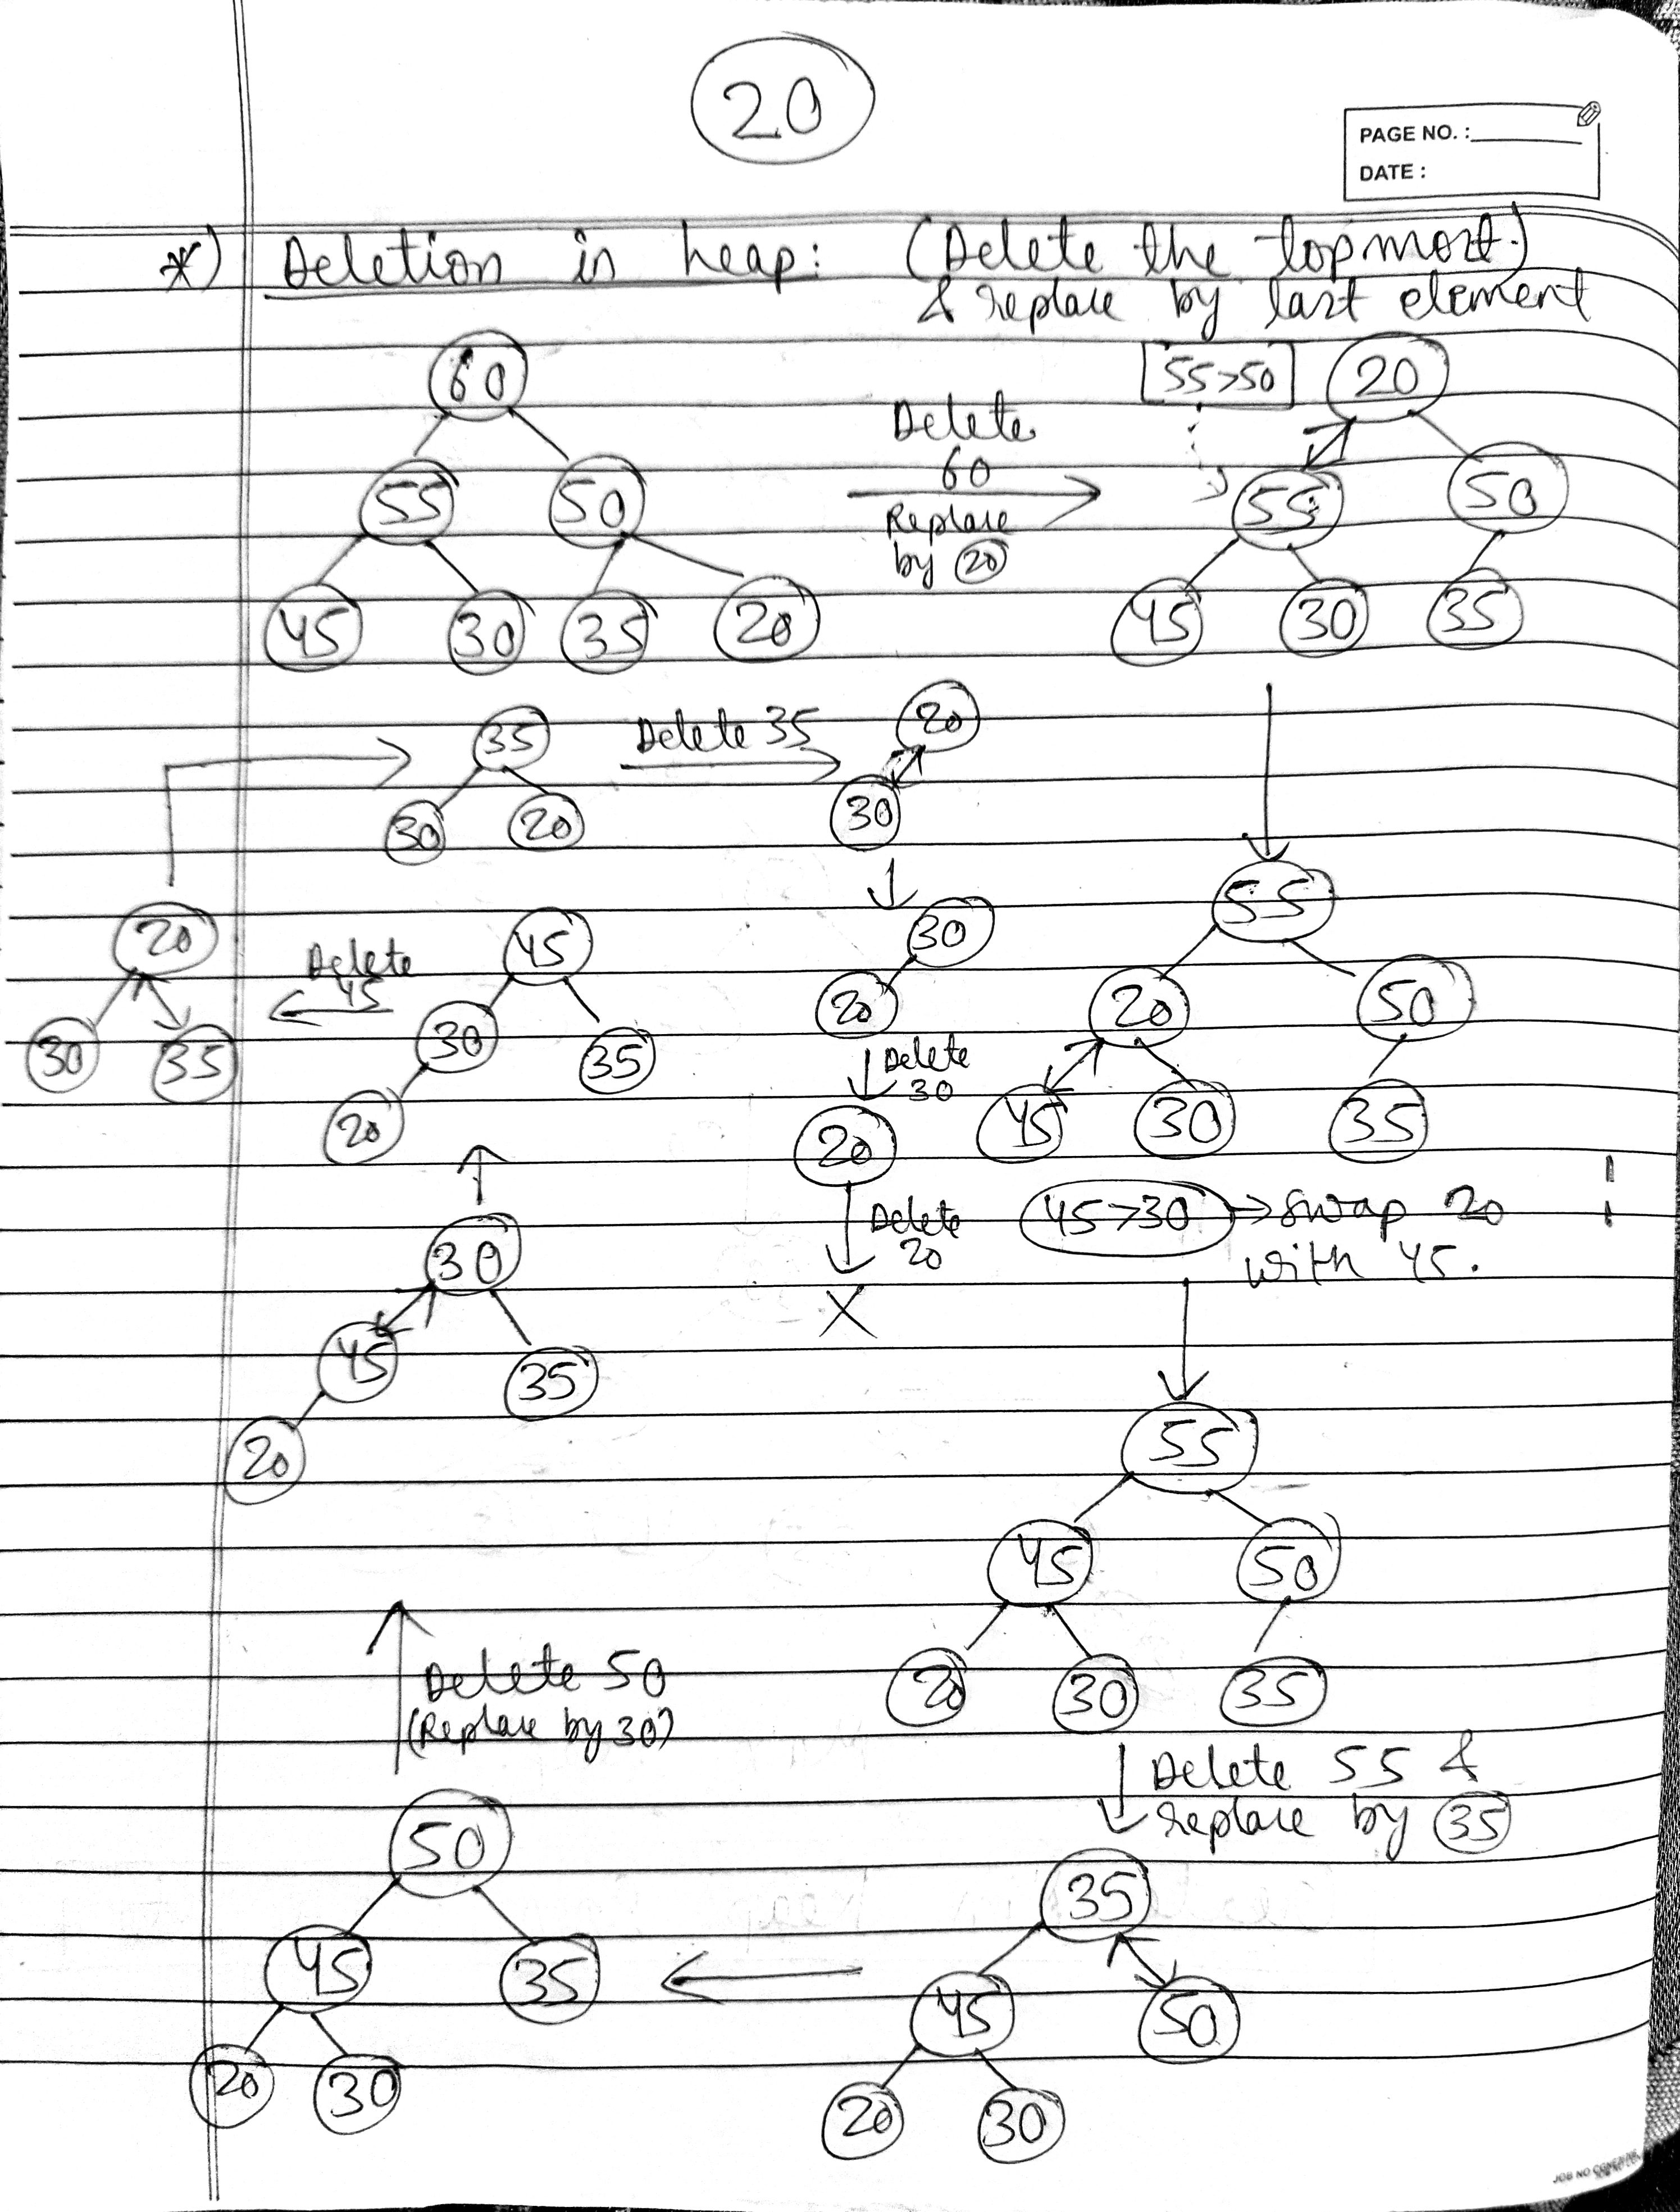 20
PAGE NO. :
DATE :
*) Deletion in heap: (Delete the topmost.)
& replace by last element
60
55 50
45 30 35 20
Delete
60
Replace
by 20
55>50
20
55 50
45 30 35
55
20 50
45 30 35
45>30 → swap 20
with 45.
55
45 50
20 30 35
Delete 55 &
replace by 35
35
45 50
20 30
50
45 35
20 30
Delete 50
(Replace by 30)
30
45 35
20
45
30 35
20
Delete
45
20
30 35
35
30 20
Delete 35
20
30
30
20
Delete
30
20
Delete
20
X